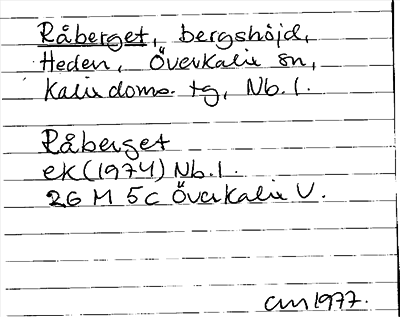 Råberget, bergshöjd,
Heden, Överkalix sn,
Kalix doms. tg, Nb. l.
Råberget
ek (1974) Nb. l.
26 M 5 c Överkalix V.
CM 1977.